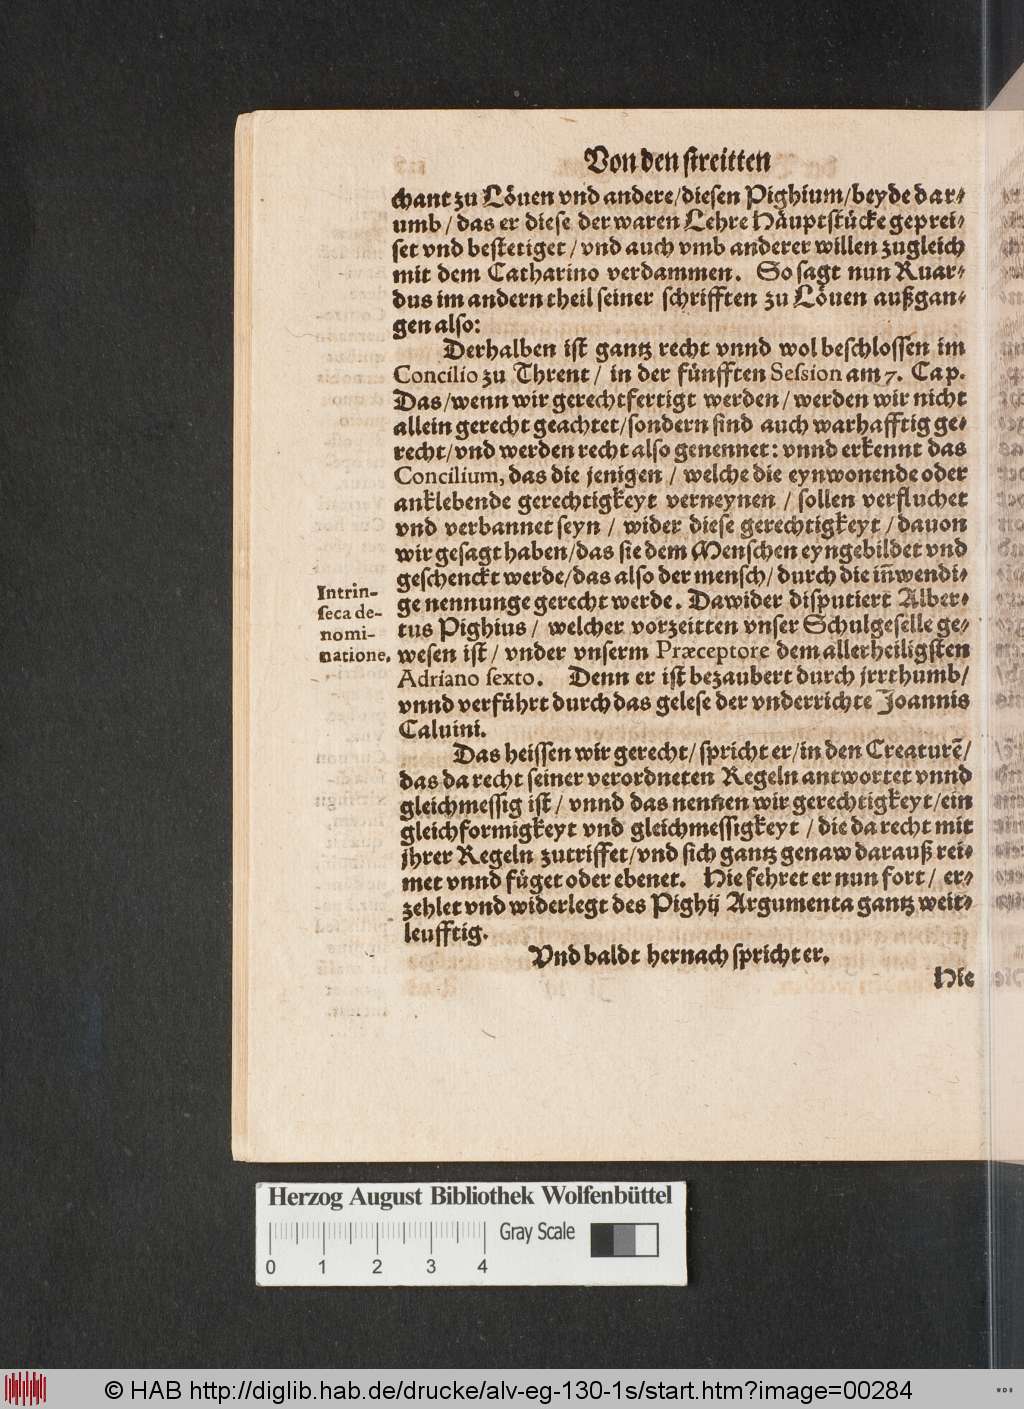 Von den streitten
chant zu Löuen vnd andere/diesen Pighium/beyde dar⸗
umb/das er diese der waren Lehre Häuptstücke geprei⸗
set vnd bestetiget/vnd auch vmb anderer willen zugleich
mit dem Catharino verdammen. So sagt nun Ruar⸗
dus im andern theil seiner schrifften zu Löuen außgan⸗
gen also:
Derhalben ist gantz recht vnnd wol beschlossen im
Concilio zu Thrent/ in der fünfften Session am 7. Cap.
Das/wenn wir gerechtfertigt werden/werden wir nicht
allein gerecht geachtet/sondern sind auch warhafftig ge⸗
recht/vnd werden recht also genennet: vnnd erkennt das
Concilium, das die jenigen/ welche die eynwonende oder
anklebende gerechtigkeyt verneynen/ sollen verfluchet
vnd verbannet seyn/ wider diese gerechtigkeyt/dauon
wir gesagt haben/das sie dem Menschen eyngebildet vnd
geschenckt werde/das also der mensch/durch die iñwendi⸗
ge nennunge gerecht werde. Dawider disputiert Alber⸗
tus Pighius/ welcher vorzeitten vnser Schulgeselle ge⸗
wesen ist/ vnder vnserm Præceptore dem allerheiligsten
Adriano sexto. Denn er ist bezaubert durch jrrthumb/
vnnd verführt durch das gelese der vnderrichte Joannis
Caluini.
Intrin-
seca de-
nomi-
natione.
Das heissen wir gerecht/spricht er/in den Creaturẽ/
das da recht seiner verordneten Regeln antwortet vnnd
gleichmessig ist/ vnnd das nennen wir gerechtigkeyt/ein
gleichformigkeyt vnd gleichmessigkeyt/die da recht mit
jhrer Regeln zutriffet/vnd sich gantz genaw darauß rei⸗
met vnnd füget oder ebenet. Hie fehret er nun fort/ er⸗
zehlet vnd widerlegt des Pighij Argumenta gantz weit⸗
leufftig.
Vnd baldt hernach spricht er.
Hie
Herzog August Bibliothek Wolfenbüttel
Gray Scale
0 1 2 3 4
© HAB http://diglib.hab.de/drucke/alv-eg-130-1s/start.htm?image=00284